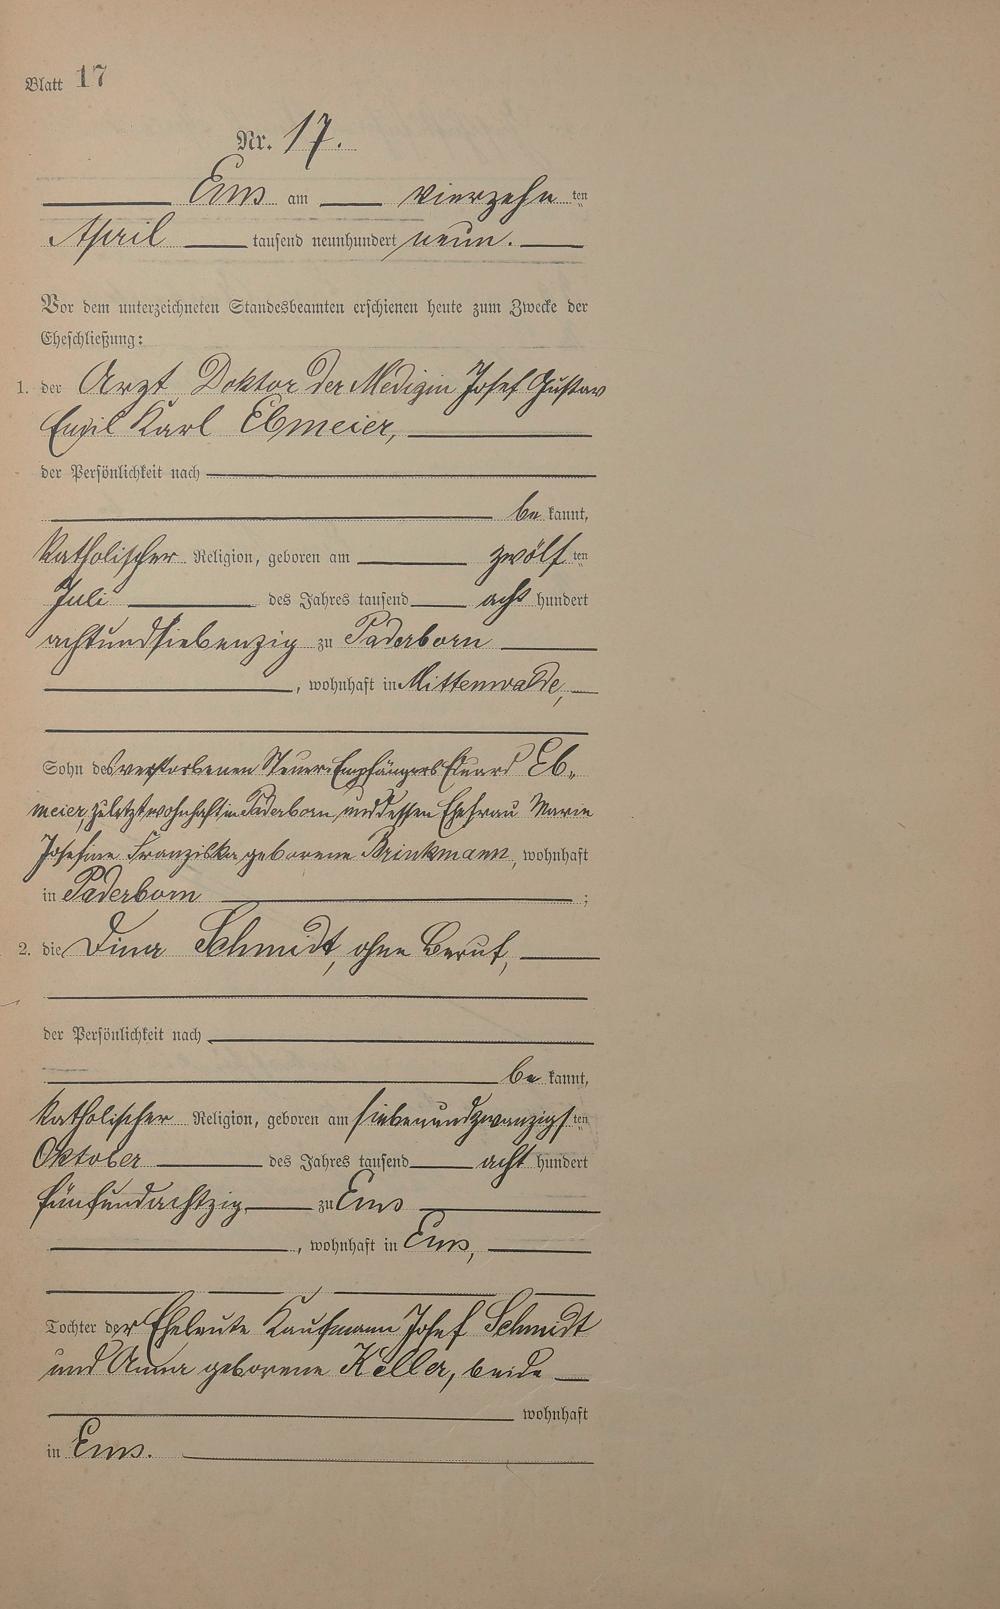 Blatt 17
Nr. 17.
Ems am vierzehn ten
April tausend neunhundert neun.
Vor dem unterzeichneten Standesbeamten erschienen heute zum Zwecke der
Eheschließung:
1. der Arzt Doktor der Medizin Josef Gustav
Emil Karl Ebmeier,
der Persönlichkeit nach
be kannt,
katholischer Religion, geboren am zwölf ten
Juli des Jahres tausend acht hundert
achtundsiebenzig zu Paderborn
, wohnhaft in Mittenwalde,
Sohn des verstorbenen Steuer-Empfängers Eduard Eb-
meier, zuletzt wohnhaft in Paderborn, und dessen Ehefrau Marie
Josefine Franziska geborene Brinkmann, wohnhaft
in Paderborn ;
2. die Dina Schmidt, ohne Beruf,
der Persönlichkeit nach
be kannt,
katholischer Religion, geboren am siebenundzwanzigs ten
Oktober des Jahres tausend acht hundert
fünfundachtzig zu Ems
, wohnhaft in Ems,
Tochter der Eheleute Kaufmann Josef Schmidt
und Anna geborene Keller, beide
wohnhaft
in Ems.